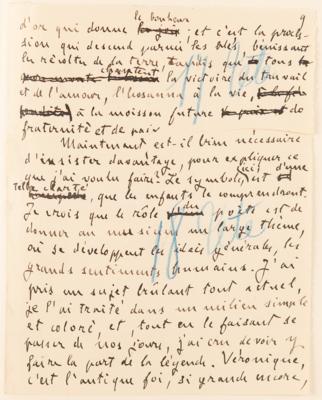 9
le bonheur
d'or qui donne ; et c'est la proces-
sion qui descend parmi les blés, bénissant
la récolte de la terre, tandis que tous
chantent la victoire du travail
et de l'amour, l'hosanna à la vie,
à la moisson future de
fraternité et de paix.
Maintenant est-il bien nécessaire
d'insister davantage, pour expliquer ce
que j'ai voulu faire? Le symbole ici est d'une
telle clarté, que les enfants le comprendront.
Je crois que le rôle du poète est de
donner au musicien un large thème,
où se développent les idées générales, les
grands sentiments humains. J'ai
pris un sujet brûlant tout actuel,
je l'ai traité dans un milieu simple
et coloré, et, tout en le faisant se
passer de nos jours, j'ai cru devoir y
faire la part de la légende. Véronique,
c'est l'antique foi, si grande encore,